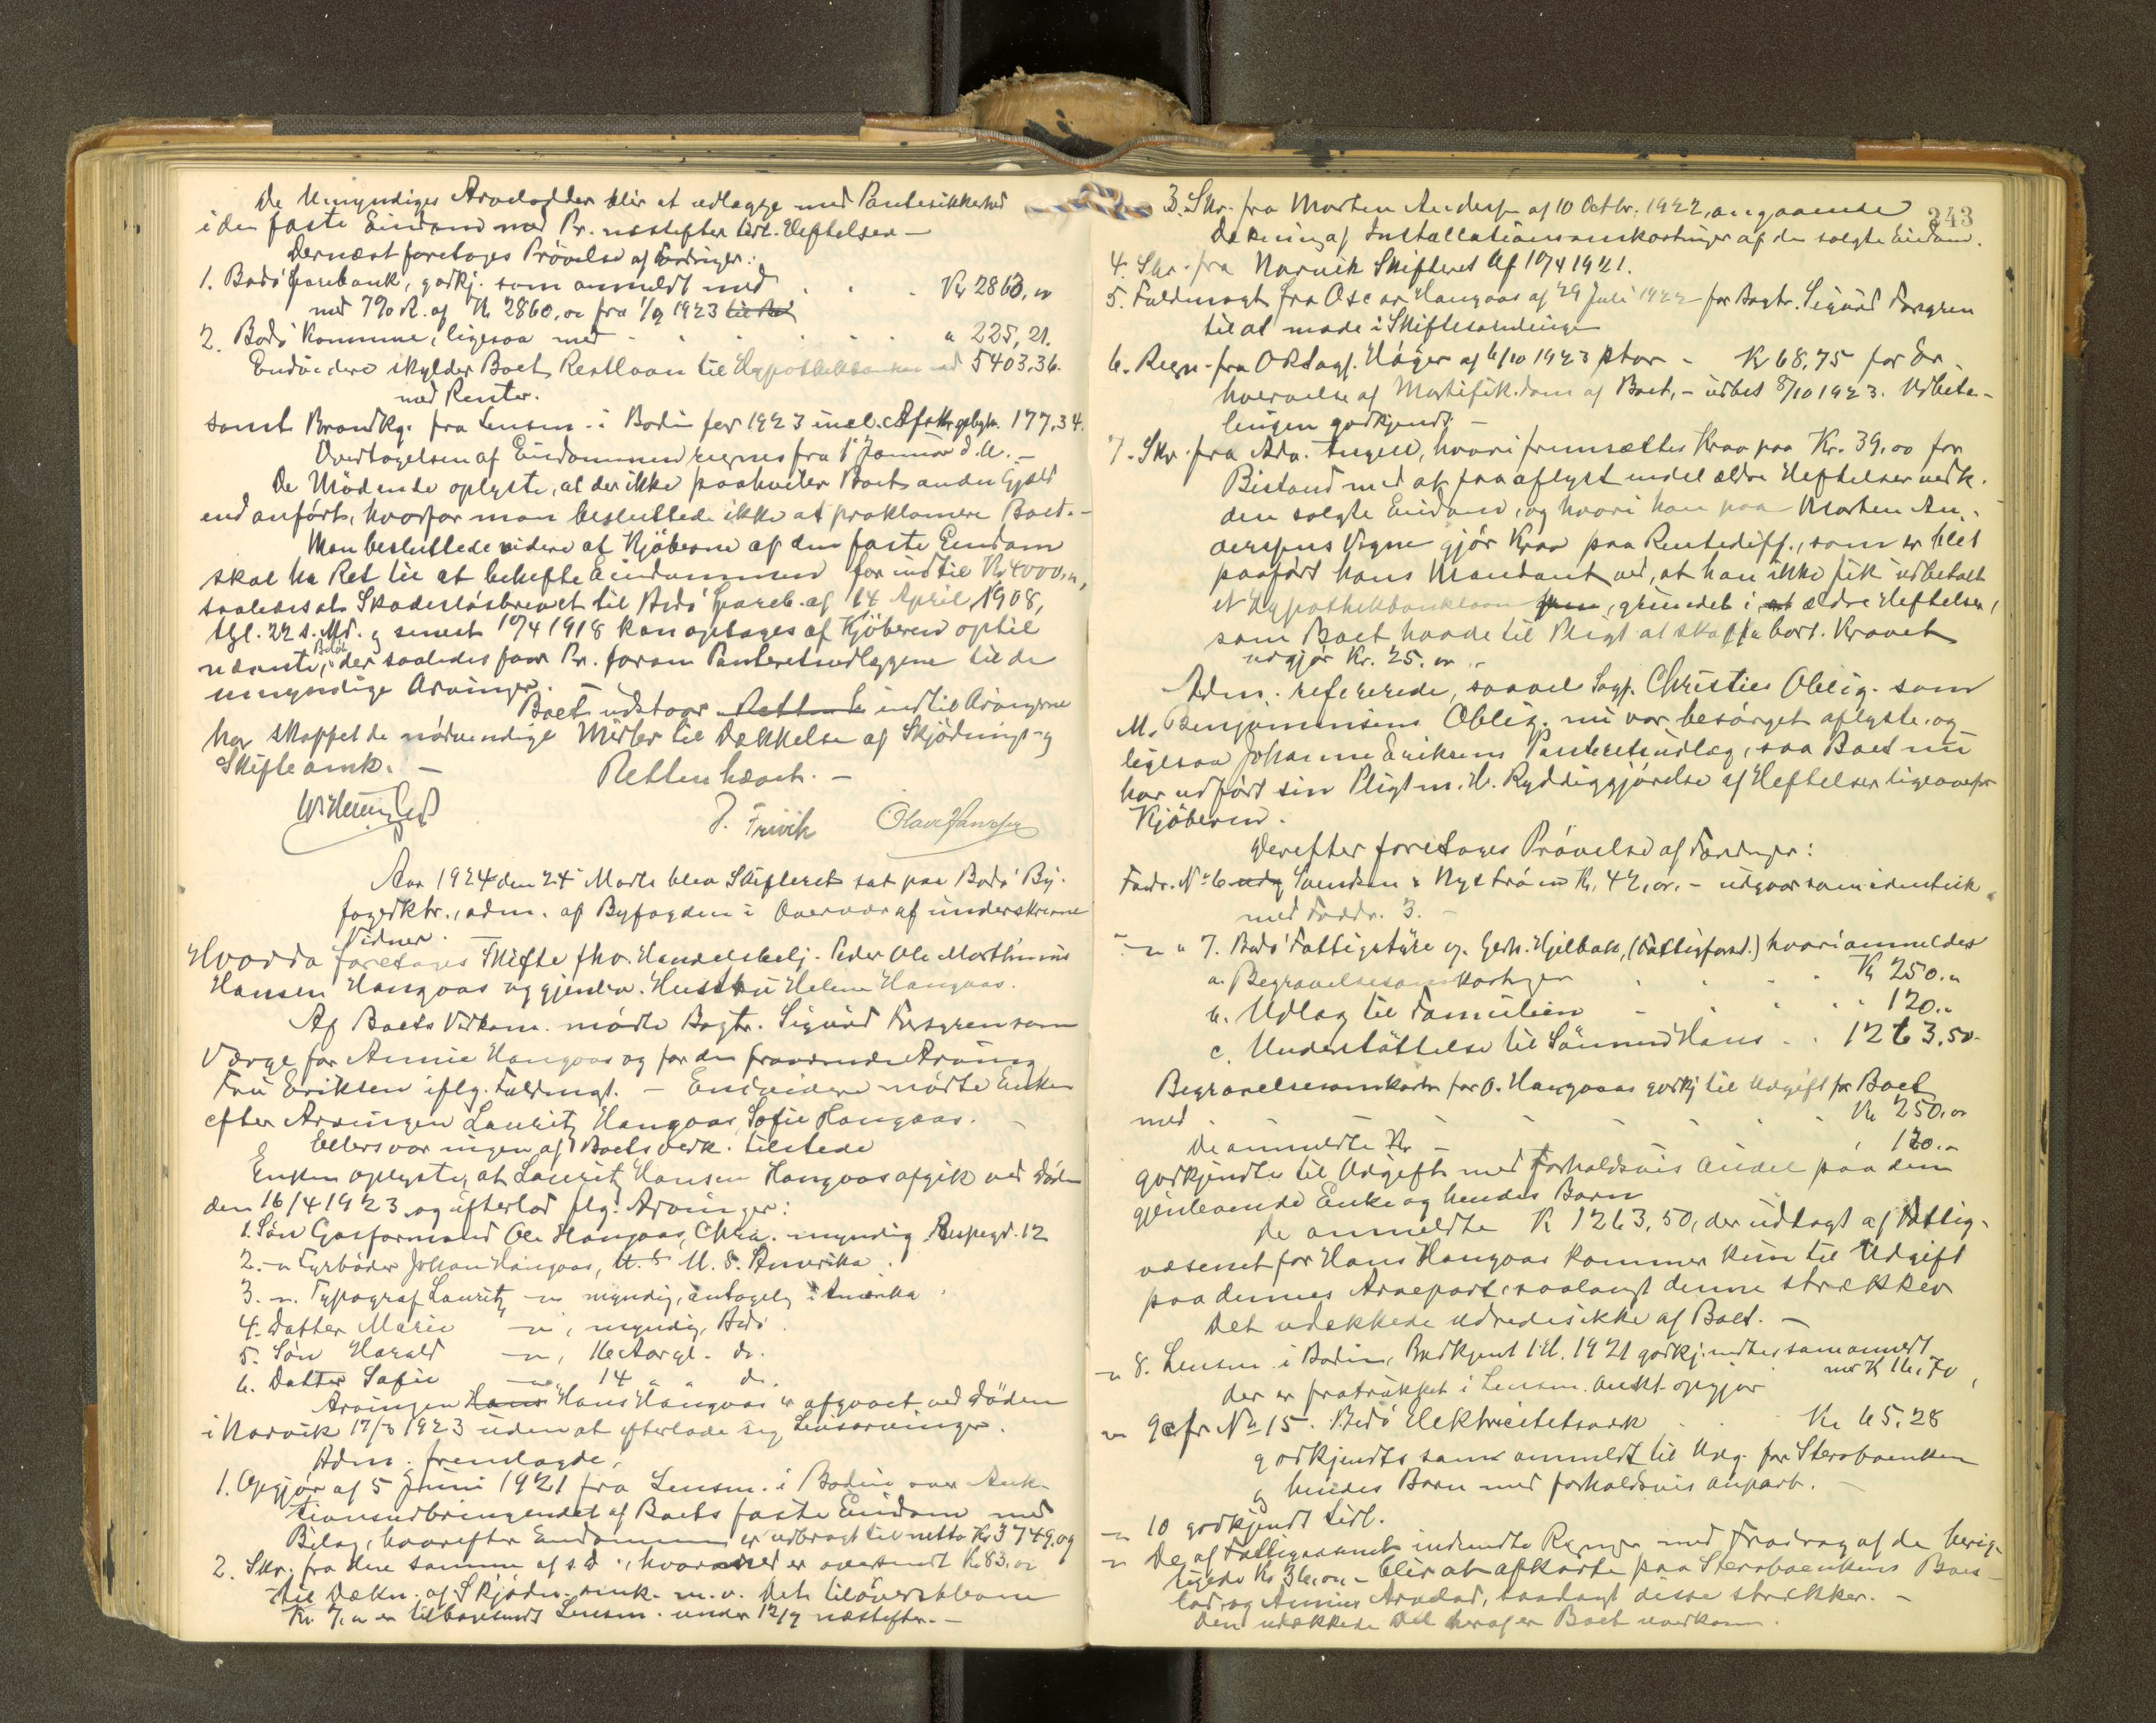 De Umyndiges Arvelodder blir at udlægge med Pantesikkerhed
i den faste Eiendom med Pr. næstefter tidl. Heftelser –
Dernæst foretoges Prøvelse af Fordringer:
1. Bodø Sparebank, godkj. som anmeldt med . . . Kr 2863,00
med 7% R. af Kr 2860,00 fra 1/9 1923
2. Bodø Kommune, ligesaa med . . . " 225,21.
Endvidere skylder Boet Restlaan til Hypothekbanken med 5403,36.
med Renter.
samt Brandkg. fra Lensm. i Bodin for 1923 incl. 177,34.
Overtagelsen af Eiendommen regnes fra 1 Januar d. A. –
De Mødende oplyste, at der ikke paahviler Boet anden Gjæld
end anført, hvorfor man besluttede ikke at proklamere Boet. –
Man besluttede videre at Kjøberne af den faste Eiendom
skal ha Ret til at behefte Eiendommen for indtil Kr 4000,00,
saaledes at Skadesløsbrevet til Bodø Spareb. af 14 April 1908,
tgl. 22 s. Md. og senest 10/4 1918 kan optages af Kjøberen optil
nævnte Beløb, der saaledes faar Pr. foran Panteretsudlæggene til de
umyndige Arvinger. –
Boet udstaar indtil Arvingerne
har skaffet de nødvendige Midler til Dækkelse af Skjødnings- og
Skifteomk. –
Retten hævet. –
J. Frivik Olav Hansen
Aar 1924 den 24 Marts blev Skifteret sat paa Bodø By-
fogedktr., adm. af Byfogden i Overvær af underskrevne
Vidner.
Hvorda foretoges Skifte fhv. Handelsbetj. Peder Ole Morthinius
Hansen Hangaas og gjenlev. Hustru Helene Hangaas.
Af Boets Vedkom. mødte Bagtr. Sigurd Forsgren som
Værge for Annie Hangaas og for den fraværende Arving
Fru Eriksen iflg. Fuldmgt. – Endvidere mødte Enken
efter Arvingen Lauritz Hangaas, Sofie Hangaas. –
Ellers var ingen af Boets Vedk. tilstede
Enken oplyste, at Lauritz Hansen Hangaas afgik ved Døden
den 16/4 1923 og efterlod flg. Arvinger:
1. Søn Gasformand Ole Hangaas, Chra. myndig 12
2. – " Fyrbøder Johan Hangaas, U. S. Amerika.
3. – ". Typograf Lauritz – " – myndig, antagelig i Amerika.
4. Datter Marie – " –, myndig, Bodø.
5. Søn Harald – " –, 16 Aar gl. do.
6. Datter Sofie – " – 14 " " do.
Arvingen Hans Hangaas er afgaaet ved Døden
i Narvik 17/3 1923 uden at efterlade sig Livsarvinger.
Adm. fremlagde:
1. Opgjør af 5 Juni 1921 fra Lensm. i Bodin over Auk-
tionsudbringendet af Boets faste Eiendom med
Bilag, hvorefter Eiendommen er udbragt til netto Kr 3749,00
2. Skr. fra den samme af s. d., hvorved er oversendt Kr 83,00
til Dækn. af Skjødn. omk. m. v. Det tiloversblevne
Kr 7,00 er tilbagesendt Lensm. under 12/7 næstefter. –
243
3. Skr. fra Morten Anders. af 10 Octbr. 1922, angaaende
Dækning af Installationsomkostninger af den solgte Eiendom.
4. Skr. fra Narvik Skifteret af 10/4 1921.
5. Fuldmagt fra Oscar Hangaas af 29 Juli 1922 for Bagtr. Sigurd Forsgren
til at møde i Skiftesamlinger
6. Regn. fra ORsagf. Høyer af 6/10 1923 stor – Kr 68,75 for Er-
hvervelse af Mortifik.dom af Boet, – udbet 8/10 1923. Udbeta-
lingen godkjendt –
7. Skr. fra Adv. Angell, hvori fremsættes Krav paa Kr. 39,00 for
Bistand med at faa aflyst endel ældre Heftelser vedk.
den solgte Eiendom, og hvori han paa Morten An-
dersens Vegne gjør Krav paa Rentediff., som er blet
paaført hans Mandant ved, at han ikke fik udbetalt
et Hypothekbanklaan, grundet i ældre Heftelser,
som Boet havde til Pligt at skaffe bort. Kravet
udgjør Kr. 25.00 –
Adm. refererede, saavel Sagf. Christies Oblig. som
M. Benjaminsens Oblig. nu var besørget aflyste, og
ligesaa Johanne Eriksens Panteretsudlæg, saa Boet nu
har udført sin Pligt m. H. Ryddiggjørelse af Heftelser ligeoverfor
Kjøberen.
Derefter foretoges Prøvelse af Fordringer:
Fordr. No 6 Svendsen & Nystrøm Kr. 42,00. – udgaar som identisk
med Fordr. 3. –
– " – " 7. Bodø Fattigstyre v. Gerh. Hjelbak, (Fattigforst.) hvori anmeldes
a. Begravelsesomkostninger . . . Kr 250.00
b. Udlæg til Familien – . . . 120.00
c. Understøttelse til Sønnen Hans . . 1263,50.
Begravelsesomkostn for O. Hangaas godkj til Udgift for Boet
med . . . Kr 250,00
De anmeldte Kr – . . . 120.–
godkjendtes til Udgift med forholdsvis Andel paa den
gjenlevende Enke og hendes Barn
De anmeldte Kr 1263,50, der udlagt af Fattig-
væsenet for Hans Hangaas kommer kun til Udgift
paa dennes Arvepart, saalangt denne strækker
Det udækkede udredes ikke af Boet. –
– " 8. Lensm. i Bodin, 1921 godkjendtes som anmeldt
med Kr 16,70,
der er fratrukket i Lensm. Aukt. opgjør
– " 9 cfr No 15. Bodø Elektricitetsværk . . . Kr 65,28
godkjendtes som anmeldt til Udg. for Sterboenken
og hendes Barn med forholdsvis Anpart. –
– " 10 godkjendt tidl.
– " De af Fattigvæsenet indsendte Regninger med Fradrag af de berig-
tigede Kr 36,00, – blir at afkorte paa Sterboenkens Boes-
lod og Annies Arvelod, saalangt disse strækker. –
Den udækkede Del heraf er Boet uvedkom.